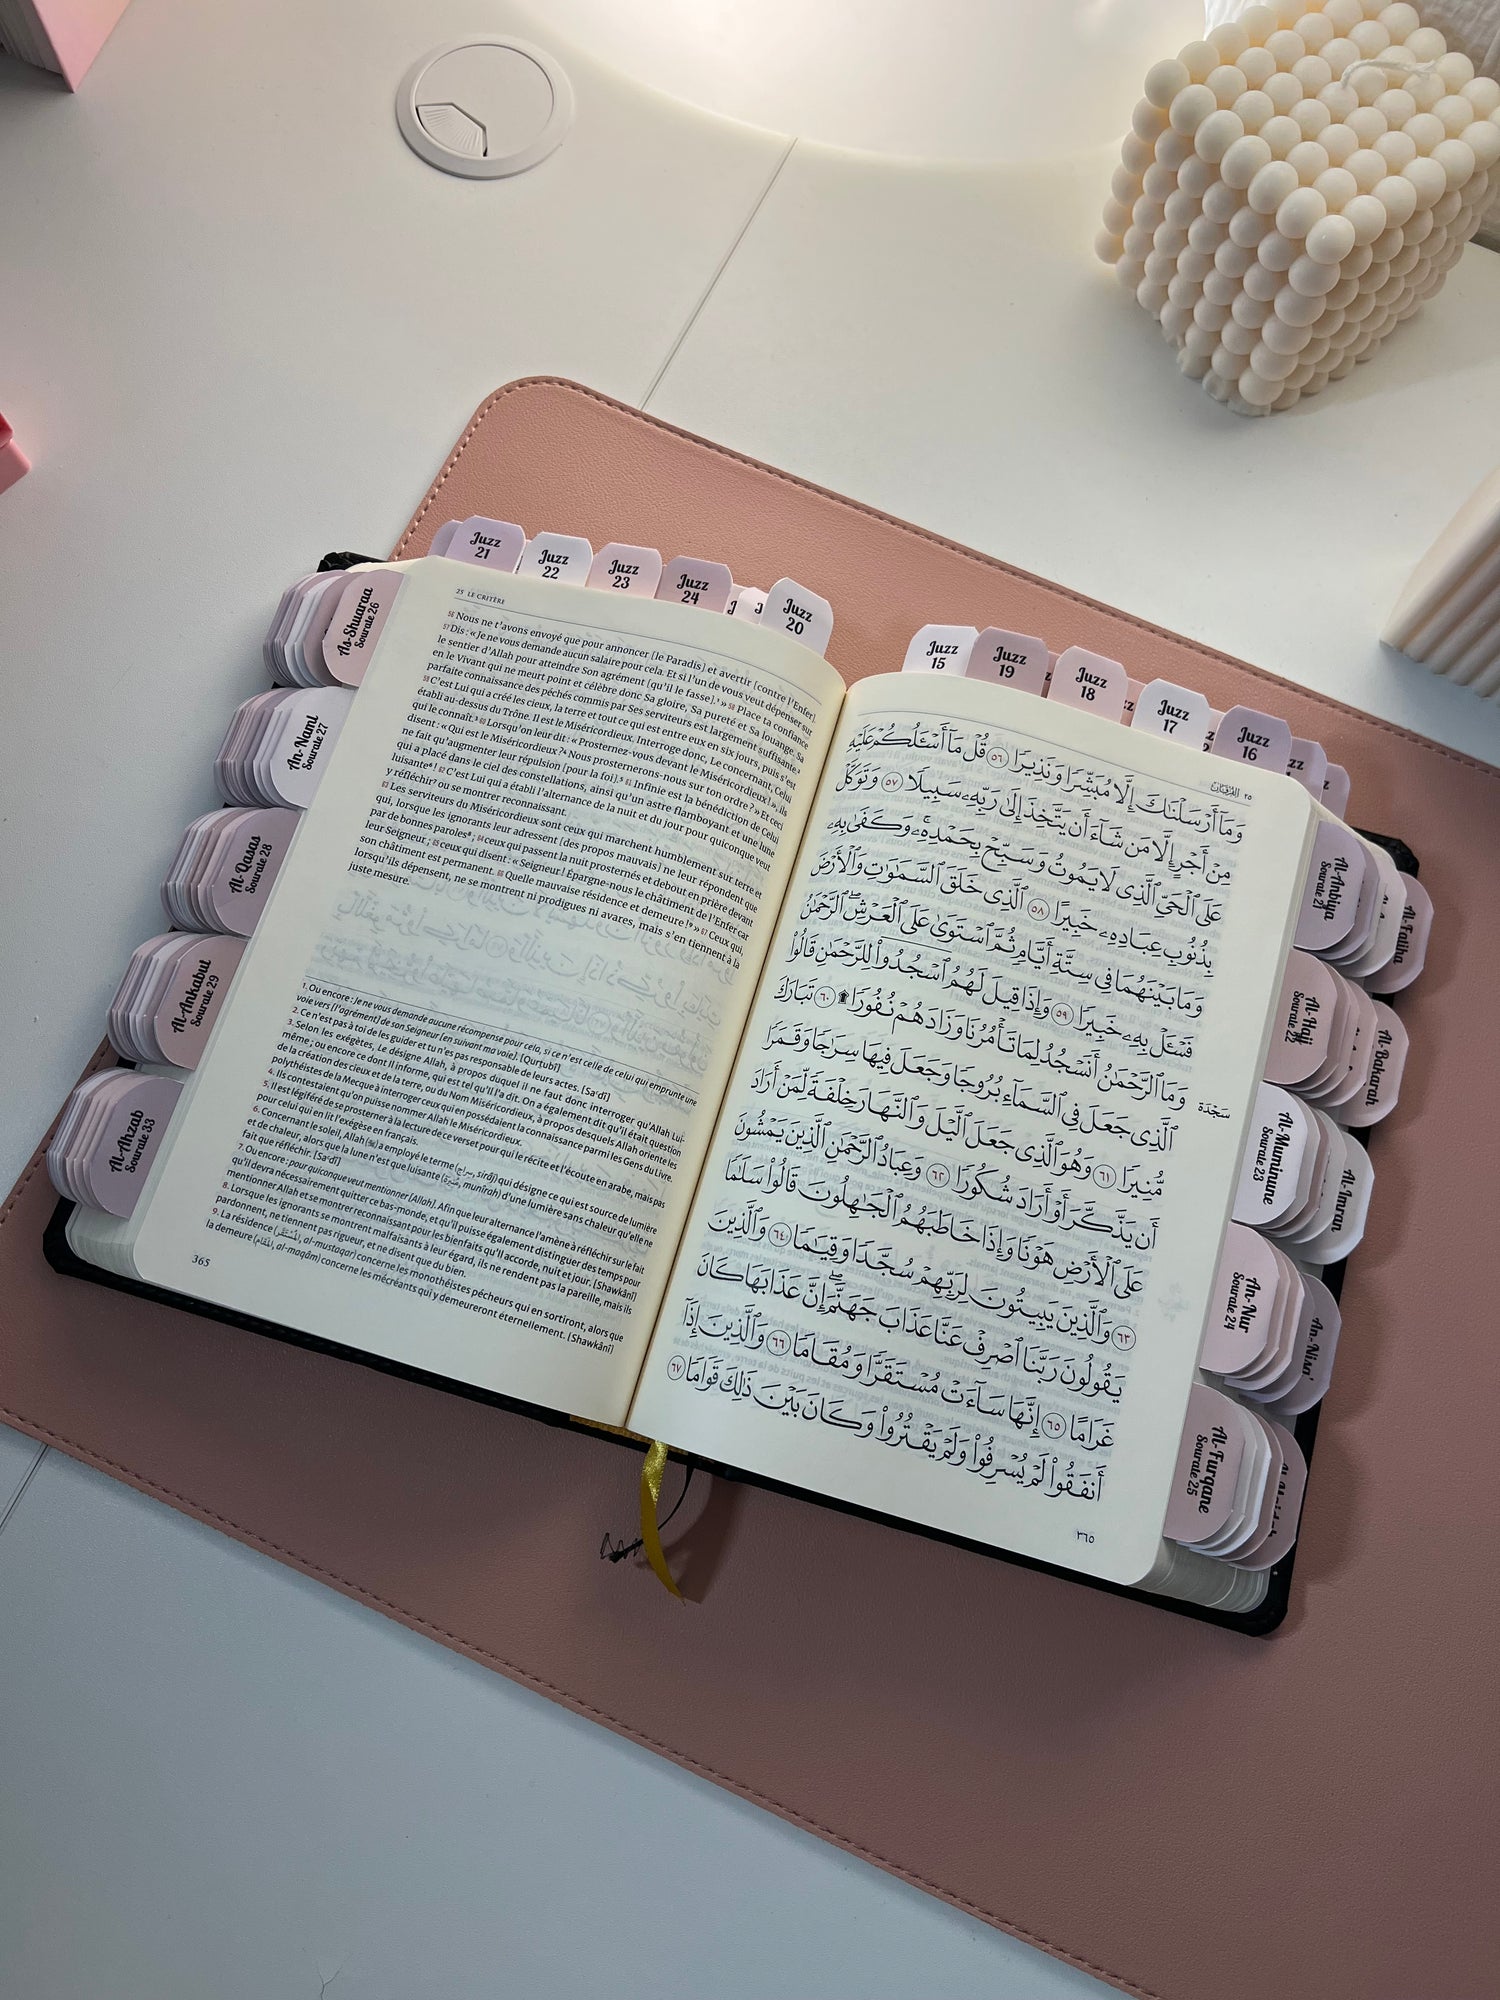 Juzz
21
Juzz
22
Juzz
23
Juzz
24
Juzz
20
Juzz
15
Juzz
19
Juzz
18
Juzz
17
Juzz
16
As-Shuaraa
Sourate 26
An-Naml
Sourate 27
Al-Qasas
Sourate 28
Al-Ankabut
Sourate 29
Al-Ahzab
Sourate 33
25 LE CRITÈRE
56 Nous ne t'avons envoyé que pour annoncer [le Paradis] et avertir [contre l'Enfer].
57 Dis : « Je ne vous demande aucun salaire pour cela. Et si l'un de vous veut dépenser sur
le sentier d'Allah pour atteindre Son agrément [qu'il le fasse].¹ » 58 Place ta confiance
en le Vivant qui ne meurt point et célèbre donc Sa gloire, Sa pureté et Sa louange. Sa
parfaite connaissance des péchés commis par Ses serviteurs est largement suffisante²
59 C'est Lui qui a créé les cieux, la terre et tout ce qui est entre eux en six jours, puis s'est
établi au-dessus du Trône. Il est le Miséricordieux. Interroge donc, Le concernant, Celui
qui le connaît.³ 60 Lorsqu'on leur dit : « Prosternez-vous devant le Miséricordieux ! », ils
disent : « Qui est le Miséricordieux ?⁴ Nous prosternerons-nous sur ton ordre ? » Et ceci
ne fait qu'augmenter leur répulsion [pour la foi].⁵ 61 Infinie est la bénédiction de Celui
qui a placé dans le ciel des constellations, ainsi qu'un astre flamboyant et une lune
luisante⁶ ! 62 C'est Lui qui a établi l'alternance de la nuit et du jour pour quiconque veut
y réfléchir⁷ ou se montrer reconnaissant.
63 Les serviteurs du Miséricordieux sont ceux qui marchent humblement sur terre et
qui, lorsque les ignorants leur adressent [des propos mauvais] ne leur répondent que
par de bonnes paroles⁸ ; 64 ceux qui passent la nuit prosternés et debout en prière devant
leur Seigneur ; 65 ceux qui disent : « Seigneur ! Épargne-nous le châtiment de l'Enfer car
son châtiment est permanent. 66 Quelle mauvaise résidence et demeure !⁹ » 67 Ceux qui,
lorsqu'ils dépensent, ne se montrent ni prodigues ni avares, mais s'en tiennent à la
juste mesure.
1. Ou encore : Je ne vous demande aucune récompense pour cela, si ce n'est celle de celui qui emprunte une
voie vers [l'agrément] de son Seigneur [en suivant ma voie]. [Qurṭubî]
2. Ce n'est pas à toi de les guider et tu n'es pas responsable de leurs actes. [Sa'dî]
3. Selon les exégètes, Le désigne Allah, à propos duquel il ne faut donc interroger qu'Allah Lui-
même ; ou encore ce dont Il informe, qui est tel qu'Il l'a dit. On a également dit qu'il était question
de la création des cieux et de la terre, ou du Nom Miséricordieux, à propos desquels Allah oriente les
polythéistes de la Mecque à interroger ceux qui en possédaient la connaissance parmi les Gens du Livre.
4. Ils contestaient qu'on puisse nommer Allah le Miséricordieux.
5. Il est légiféré de se prosterner à la lecture de ce verset pour qui le récite et l'écoute en arabe, mais pas
pour celui qui en lit l'exégèse en français.
6. Concernant le soleil, Allah (ﷻ) a employé le terme (سراج, sirâj) qui désigne ce qui est source de lumière
et de chaleur, alors que la lune n'est que luisante (مُنِيرَة, munîrah) d'une lumière sans chaleur qu'elle ne
fait que réfléchir. [Sa'dî]
7. Ou encore : pour quiconque veut mentionner [Allah]. Afin que leur alternance l'amène à réfléchir sur le fait
qu'il devra nécessairement quitter ce bas-monde, et qu'il puisse également distinguer des temps pour
mentionner Allah et se montrer reconnaissant pour les bienfaits qu'Il accorde, nuit et jour. [Shawkânî]
8. Lorsque les ignorants se montrent malfaisants à leur égard, ils ne rendent pas la pareille, mais ils
pardonnent, ne tiennent pas rigueur, et ne disent que du bien.
9. La résidence (المُسْتَقَرّ, al-mustaqar) concerne les monothéistes pécheurs qui en sortiront, alors que
la demeure (المُقَام, al-maqâm) concerne les mécréants qui y demeureront éternellement. [Shawkânî]
365
٢٥ الفُرْقَان
وَمَآ أَرْسَلْنَٰكَ إِلَّا مُبَشِّرًا وَنَذِيرًا ٥٦ قُلْ مَآ أَسْـَٔلُكُمْ عَلَيْهِ
مِنْ أَجْرٍ إِلَّا مَن شَآءَ أَن يَتَّخِذَ إِلَىٰ رَبِّهِۦ سَبِيلًا ٥٧ وَتَوَكَّلْ
عَلَى ٱلْحَىِّ ٱلَّذِى لَا يَمُوتُ وَسَبِّحْ بِحَمْدِهِۦ ۚ وَكَفَىٰ بِهِۦ
بِذُنُوبِ عِبَادِهِۦ خَبِيرًا ٥٨ ٱلَّذِى خَلَقَ ٱلسَّمَٰوَٰتِ وَٱلْأَرْضَ
وَمَا بَيْنَهُمَا فِى سِتَّةِ أَيَّامٍ ثُمَّ ٱسْتَوَىٰ عَلَى ٱلْعَرْشِ ۚ ٱلرَّحْمَٰنُ
فَسْـَٔلْ بِهِۦ خَبِيرًا ٥٩ وَإِذَا قِيلَ لَهُمُ ٱسْجُدُوا۟ لِلرَّحْمَٰنِ قَالُوا۟
وَمَا ٱلرَّحْمَٰنُ أَنَسْجُدُ لِمَا تَأْمُرُنَا وَزَادَهُمْ نُفُورًا ۩ ٦٠ تَبَارَكَ
سَجْدَة
ٱلَّذِى جَعَلَ فِى ٱلسَّمَآءِ بُرُوجًا وَجَعَلَ فِيهَا سِرَٰجًا وَقَمَرًا
مُّنِيرًا ٦١ وَهُوَ ٱلَّذِى جَعَلَ ٱلَّيْلَ وَٱلنَّهَارَ خِلْفَةً لِّمَنْ أَرَادَ
أَن يَذَّكَّرَ أَوْ أَرَادَ شُكُورًا ٦٢ وَعِبَادُ ٱلرَّحْمَٰنِ ٱلَّذِينَ يَمْشُونَ
عَلَى ٱلْأَرْضِ هَوْنًا وَإِذَا خَاطَبَهُمُ ٱلْجَٰهِلُونَ قَالُوا۟ سَلَٰمًا
٦٣ وَٱلَّذِينَ يَبِيتُونَ لِرَبِّهِمْ سُجَّدًا وَقِيَٰمًا ٦٤ وَٱلَّذِينَ
يَقُولُونَ رَبَّنَا ٱصْرِفْ عَنَّا عَذَابَ جَهَنَّمَ ۖ إِنَّ عَذَابَهَا كَانَ
غَرَامًا ٦٥ إِنَّهَا سَآءَتْ مُسْتَقَرًّا وَمُقَامًا ٦٦ وَٱلَّذِينَ إِذَآ
أَنفَقُوا۟ لَمْ يُسْرِفُوا۟ وَلَمْ يَقْتُرُوا۟ وَكَانَ بَيْنَ ذَٰلِكَ قَوَامًا ٦٧
٣٦٥
Al-Anbiya
Sourate 21
Al-Hajj
Sourate 22
Al-Muminune
Sourate 23
An-Nur
Sourate 24
Al-Furqane
Sourate 25
Al-Fatiha
Al-Baqarah
Al-Imran
An-Nisa'